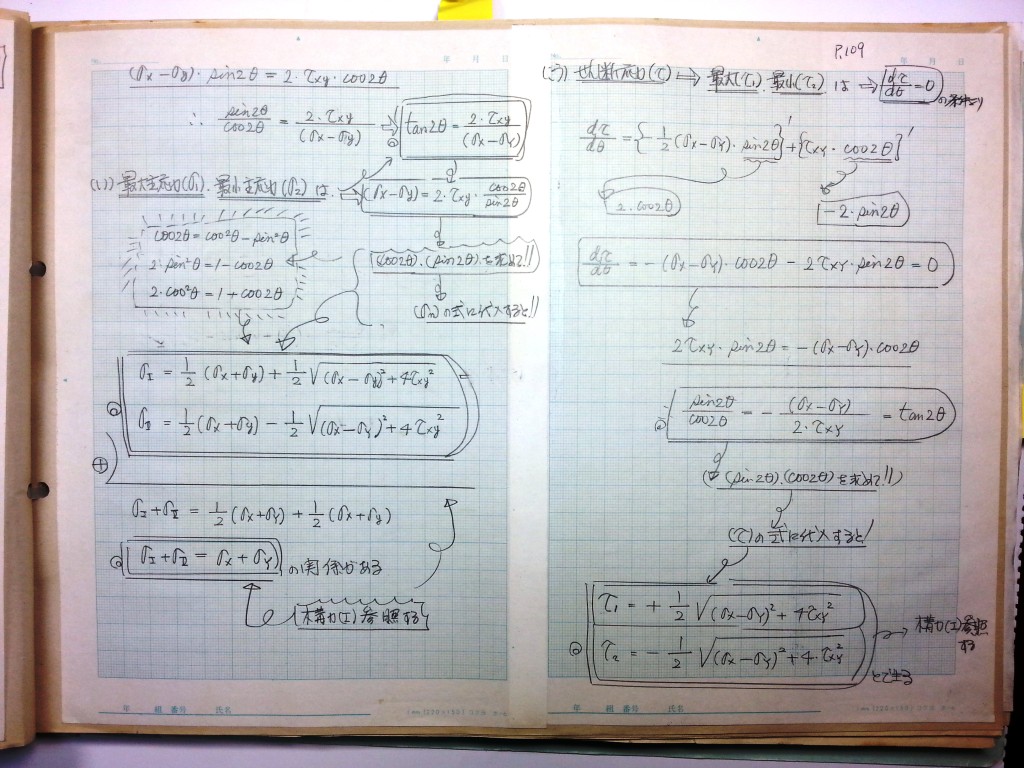 (σx−σy)・sin2θ = 2・τxy・cos2θ
∴ sin2θ/cos2θ = 2・τxy/(σx−σy) ⇒ tan2θ = 2・τxy/(σx−σy)
(い) 最大主応力(σ1)・最小主応力(σ2) は、⇒ (σx−σy) = 2・τxy・cos2θ/sin2θ
cos2θ = cos²θ − sin²θ
2・sin²θ = 1 − cos2θ
2・cos²θ = 1 + cos2θ
(cos2θ)・(sin2θ)を求めて!!
(σn)の式に代入すると!!
σI = 1/2 (σx+σy) + 1/2 √(σx−σy)²+4τxy²
σII = 1/2 (σx+σy) − 1/2 √(σx−σy)²+4τxy²
⊕
σI+σII = 1/2 (σx+σy) + 1/2 (σx+σy)
σI+σII = σx+σy の関係がある
構力(I)参照する
年 組 番号 氏名
年 月 日
P.109
(う) せん断応力(τ) ⇒ 最大(τ1)、最小(τ2) は ⇒ dτ/dθ = 0 の条件より
dτ/dθ = {−1/2 (σx−σy)・sin2θ}' + {τxy・cos2θ}'
2・cos2θ
−2・sin2θ
dτ/dθ = −(σx−σy)・cos2θ − 2τxy・sin2θ = 0
2τxy・sin2θ = −(σx−σy)・cos2θ
sin2θ/cos2θ = − (σx−σy)/2・τxy = tan2θ
(sin2θ)・(cos2θ)を求めて!!
(τ)の式に代入すると!
τ1 = + 1/2 √(σx−σy)²+4τxy²
τ2 = − 1/2 √(σx−σy)²+4・τxy²
構力(I)参照
する
とできる
年 組 番号 氏名